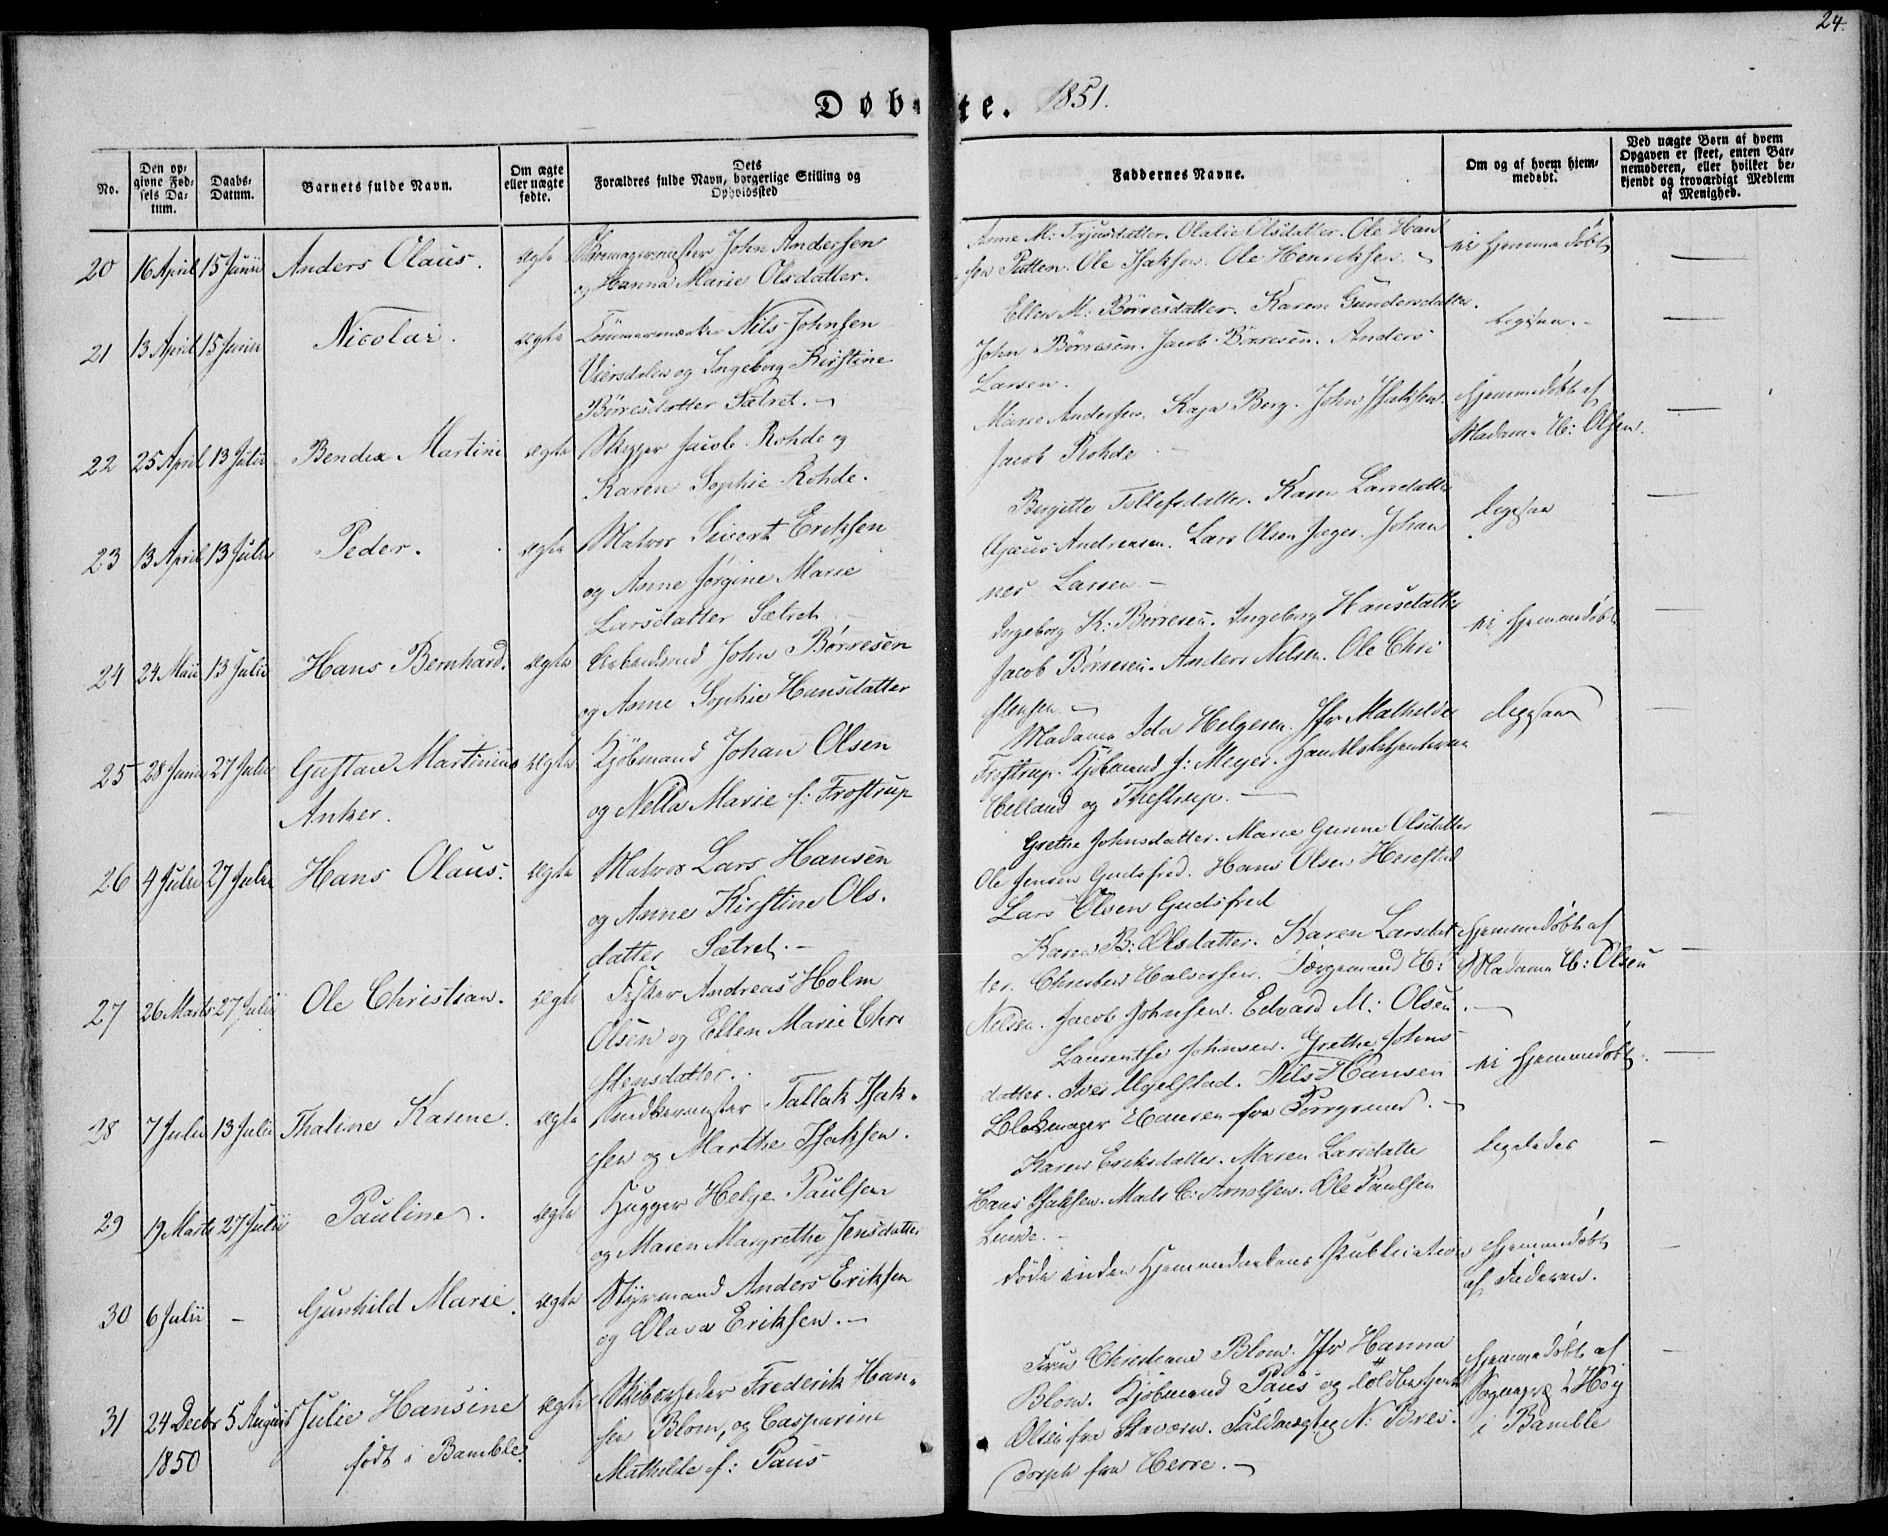 24.
Døbte. 1851.
No.
Den opgivne Fødsels Datum.
Daabs-Datum.
Barnets fulde Navn.
Om ægte eller uægte fødte.
Dets Forældres fulde Navn, borgerlige Stilling og Opholdssted
Faddernes Navne.
Om og af hvem hjemmedøbt.
Ved uægte Børn af hvem Opgaven er skeet, enten Barnemoderen, eller hvilket bekjendt og troværdigt Medlem af Menighed.
20 16 April 15 Junii Anders Olaus. ægte John Andersen
og Hanna Marie Olsdatter.
Anne M: Olalie Olsdatter. Ole Han
sen Ole Isaksen. Ole Henriksen.
ei hjemmedøbt
21 13 April 15 Junii Nicolai. ægte Tømmermærker Nils Johnsen
og Ingeborg Kirstine
Børresdatter Sætret.
Ellen M: Børresdatter. Karen Gundersdatter.
John Børresen. Jacob Børresen. Anders
Larsen.
ligesaa.
22 25 April 13 Julii Bendix Martin ægte Skipper Jacob Rohde og
Karen Sophie Rohde.
Marie Andersen. Kaja Berg. John Isaksen
Jacob Rohde
Hjemmedøbt af
Madame U: Olsen.
23 13 April 13 Julii Peder. ægte Matros Sivert Eriksen
og Anne Jørgine Marie
Larsdatter Sætret
Birgitte Tollefsdatter. Karen Larsdatter
Andreasen. Lars Olsen Jæger. Johan
nes Larsen
ligesaa
24 24 Maii 13 Julii Hans Bernhard. ægte Arbeidsmd John Børresen
og Anne Sophie Hansdatter
Ingeborg K: Børresen. Ingeborg Hansdatter
Jacob Børresen. Anders Nilsen. Ole Chri
stensen
ei hjemmedøbt
25 28 Junii 27 Julii Gustav Martinius
Anker.
ægte Kjøbmand Johan Olsen
og Nella Marie f: Frostrup
Madame Ida Helgesen. Jfr Mathilde
Frostrup. Kjøbmand J: Meyer. Handelsbetjenterne
Helland og Thestrup.
ligesaa
26 4 Julii 27 Julii Hans Olaus. ægte Matros Lars Hansen
og Anne Kirstine Ols-
datter Sætret.
Grethe Johnsdatter. Marie Gurine Olsdatter
Ole Jensen Gudsfred. Hans Olsen
Lars Olsen Gudsfred
27 26 Marts 27 Julii Ole Christian. ægte Fisker Andreas Holm
Olsen og Ellen Marie Chri
stensdatter.
Karen B: Olsdatter. Karen Larsdat
ter. Christen Halvorsen. Færgemand U:
Nilsen. Jacob Johnsen. Edvard M: Olsen.
Hjemmedøbt af
Madame U: Olsen
28 7 Julii 13 Julii Thaline Karine. ægte Smedemester Tallak Isak-
sen og Marthe Isaksen.
Laurentse Johnsen. Grethe Johns
datter. Iver Ugelstad. Nils Hansen
Blokmager Hansen fra Porsgrund.
ei hjemmedøbt.
29 19 Marts 27 Julii Pauline. ægte Hugger Helge Paulsen
og Maren Margrethe Jensdatter
Karen Eriksdatter. Maren Larsdatte
Hans Isaksen. Mads C: Arnolfsen. Ole Paulsen
Lunde.
ligeledes
30 6 Julii - Gunhild Marie. ægte Styrmand Anders Eriksen
og Olava Eriksen.
døde inden Hjemmedaabens Publication
Hjemmedøbt
af Faderen.
31 24 Decbr 5 August Julie Hansine
1850 født i Bamble.
ægte Skibsreder Frederik Han-
sen Blom, og Casparine
Mathilde f: Paus
Fru Christiane Blom. Jfr Hanna
Blom. Kjøbmand Paus og Toldbetjent
Olsen fra Stavern. Fuldmægtig N: Bres-
dorph fra Herre.
Hjemmedøbt af
Sognepr: Høy
i Bamble